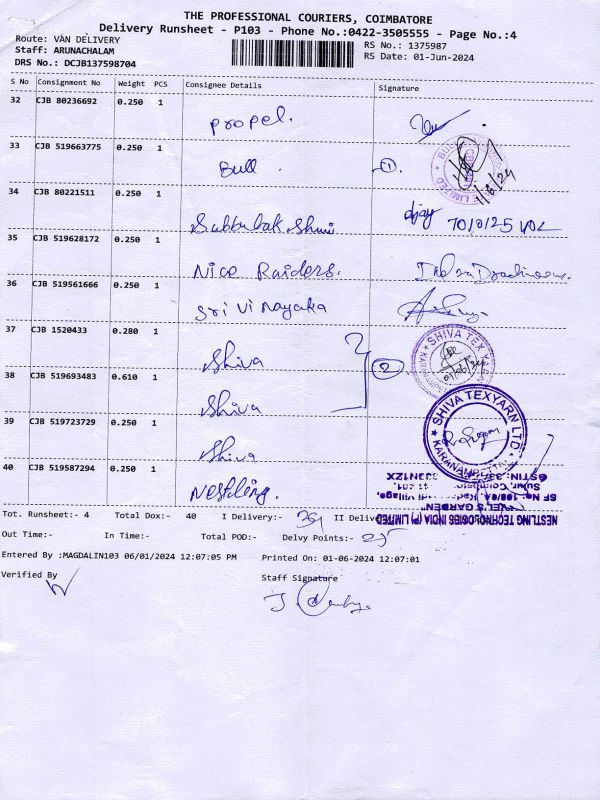 THE PROFESSIONAL COURIERS, COIMBATORE
Delivery Runsheet - P103 - Phone No.:0422-3505555 - Page No.:4
Route: VAN DELIVERY
Staff: ARUNACHALAM
DRS No.: DCJB137598704
RS No.: 1375987
RS Date: 01-Jun-2024
S No Consignment No Weight PCS Consignee Details Signature
32 CJB 80236692 0.250 1
propel.
33 CJB 519663775 0.250 1
Bull. 1
1/6/24
34 CJB 80221511 0.250 1
35 CJB 519628172 0.250 1
Nice Raiders.
36 CJB 519561666 0.250 1
Sri Vinayaka
37 CJB 1520433 0.280 1
Shiva 2
SHIVA TEXYARN
38 CJB 519693483 0.610 1
Shiva
SHIVA TEXYARN LTD
39 CJB 519723729 0.250 1
Shiva
40 CJB 519587294 0.250 1
Nestling.
NESTLING TECHNOLOGIES INDIA (P) LIMITED
Tot. Runsheet:- 4 Total Dox:- 40 I Delivery:- II Delivery
Out Time:- In Time:- Total POD:- Delvy Points:- 25
Entered By :MAGDALIN103 06/01/2024 12:07:05 PM Printed On: 01-06-2024 12:07:01
Verified By Staff Signature